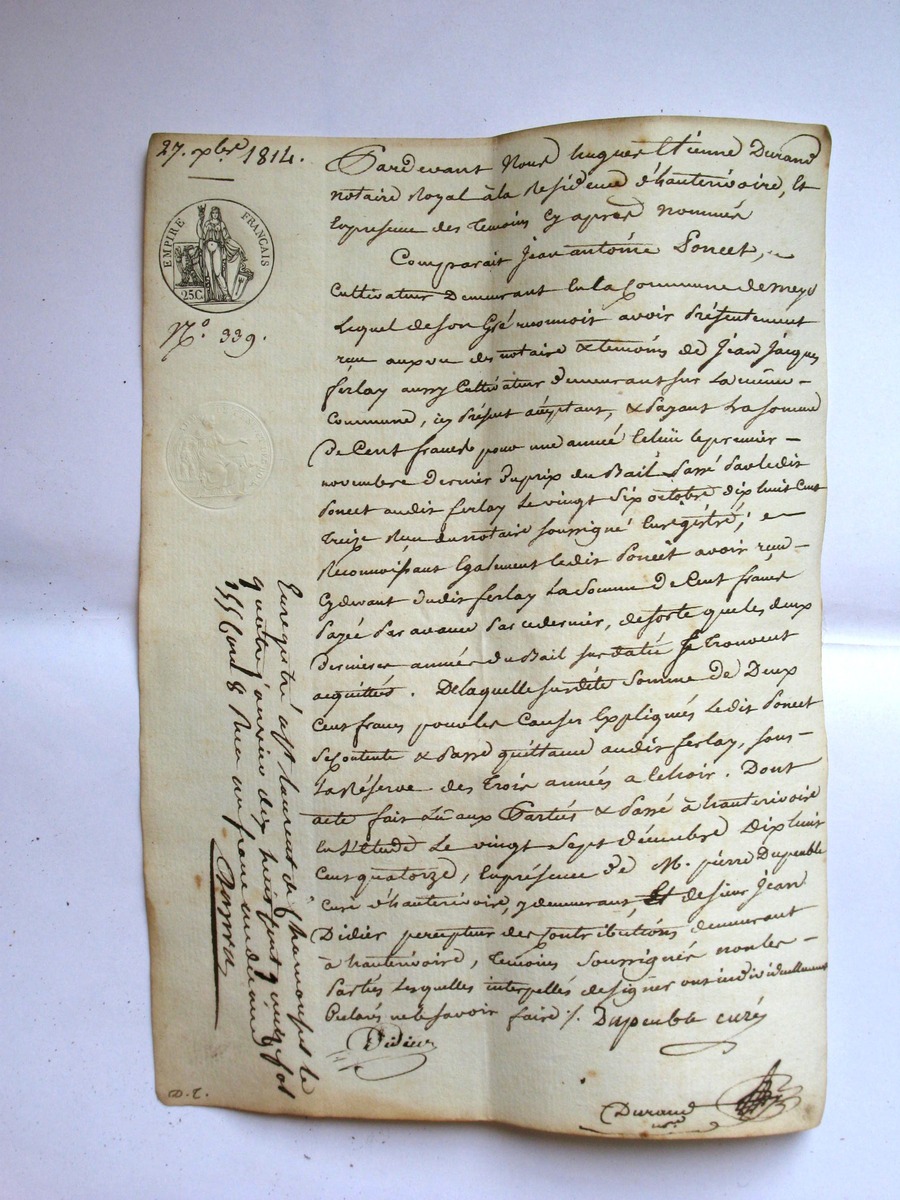 27. xbre 1814.
EMPIRE FRANÇAIS
25C
N.o 339.
Pardevant Nous hugues Etienne Durand
notaire Royal à la Residence d'hauterivoire, Et
En presence des temoins Cy après nommés
Comparait Jean antoine Poncet,
Cultivateur Demeurant En la Commune de meys
Lequel de son Gré reconnoit avoir Présentement
reçu au vu des notaire & temoins de Jean Jacques
ferlay aussy Cultivateur demeurant sur La même
Commune, icy Présent acceptant, & Payant La somme
De Cent francs pour une année Echue le premier
novembre Dernier du prix du Bail Passé Par le dit
Poncet audit ferlay Le vingt Six octobre dix huit Cent
Treize Reçu du notaire soussigné Enregistré;
Reconnoissant Egalement le dit Poncet avoir reçu
Cy devant dudit ferlay La Somme De Cent francs
Payée Par avance Par ce dernier, de sorte que les deux
Dernieres années du Bail sus daté se trouvent
acquittés. De laquelle susdite Somme de Deux
Cent francs pour les Causes Expliqués le dit Poncet
se Contente & Passe quittance audit ferlay, sous
La Réserve des Trois années a Echoir. Dont
acte fait Lu aux Parties & Passé à hauterivoire
En L'étude Le vingt Sept décembre Dix huit
Cent quatorze, En présence de M. pierre Dupeuble
Curé d'hauterivoire, y demeurant, Et de sieur Jean
Didier percepteur des Contributions demeurant
à hauterivoire, Temoins soussignés non les
Parties Lesquelles interpellés de signer ont individuellement
Declarés ne le savoir faire ./. Dupeuble curé
Didier
Durand
nre
Enregistré à St laurent de Chamousset le
quatre janvier dix huit cent quinze fol
155 Case 8 Reçu un franc un décime
D. E.